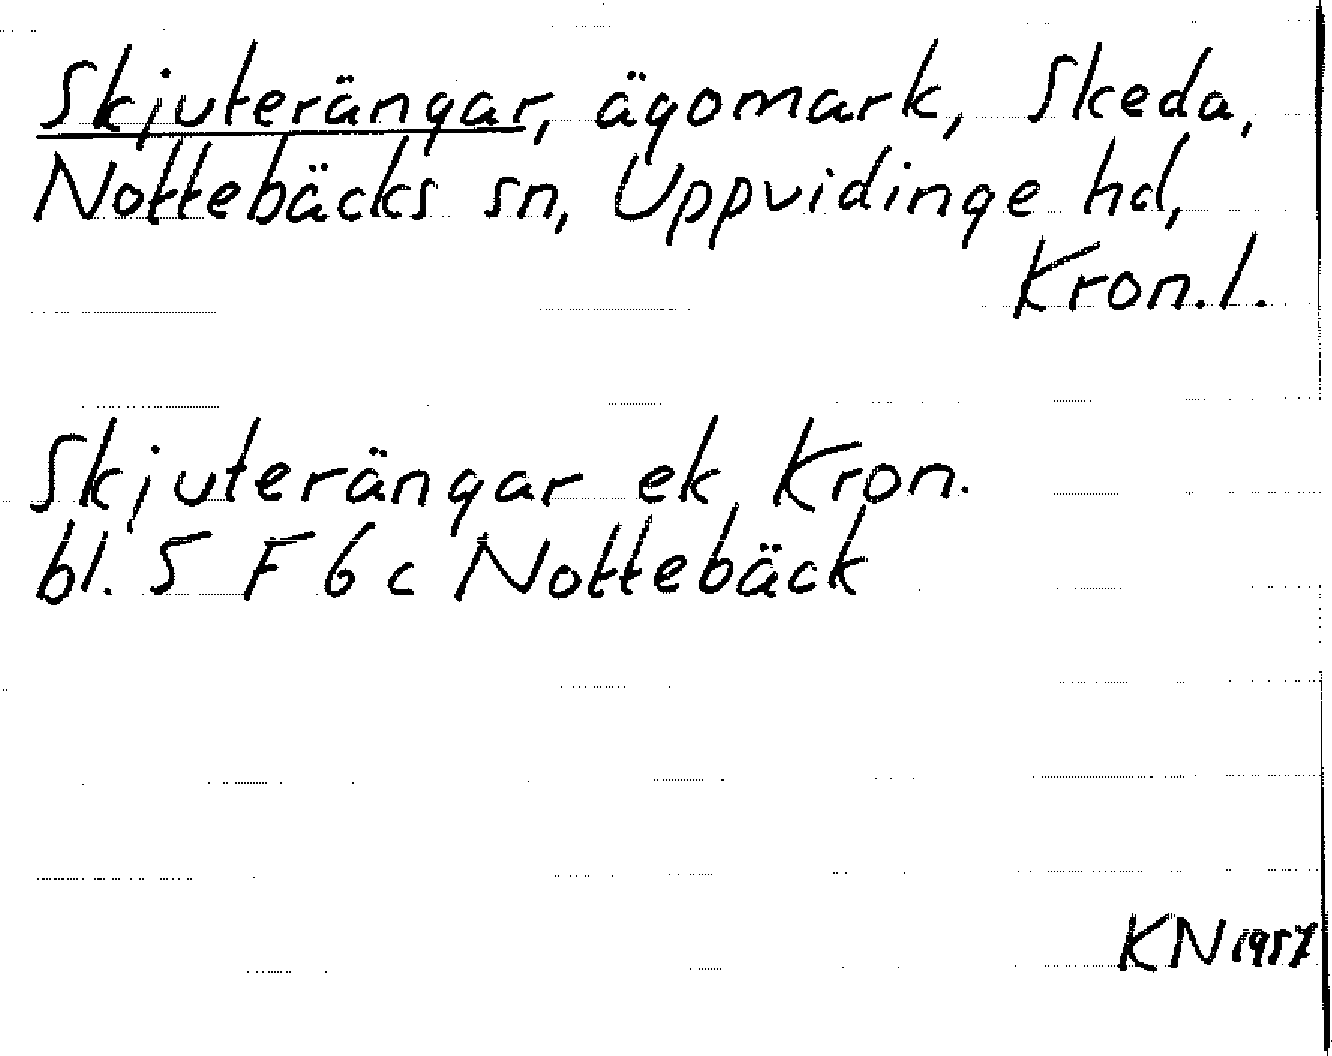 Skjuterängar, ägomark, Skeda,
Nottebäcks sn, Uppvidinge hd,
Kron.l.
Skjuterängar ek Kron.
bl. 5 F 6 c Nottebäck
KN 1957